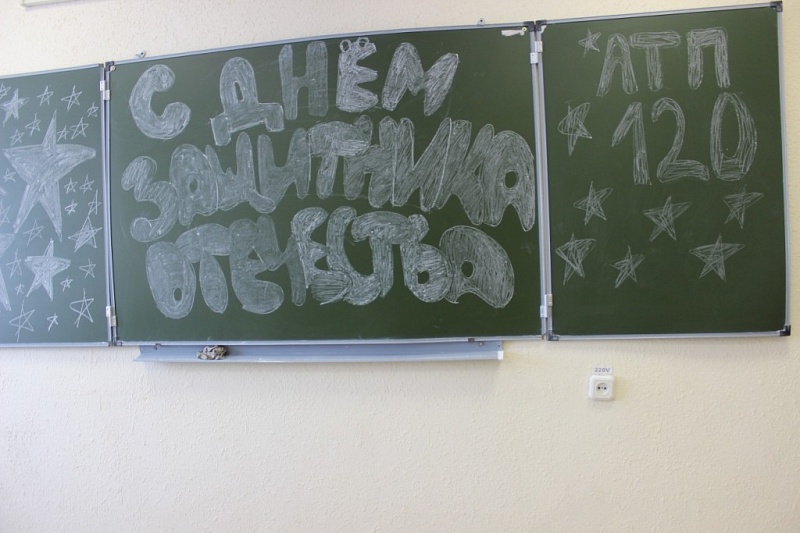 С ДНЁМ
ЗАЩИТНИКА
ОТЕЧЕСТВА
АТП
120
220V